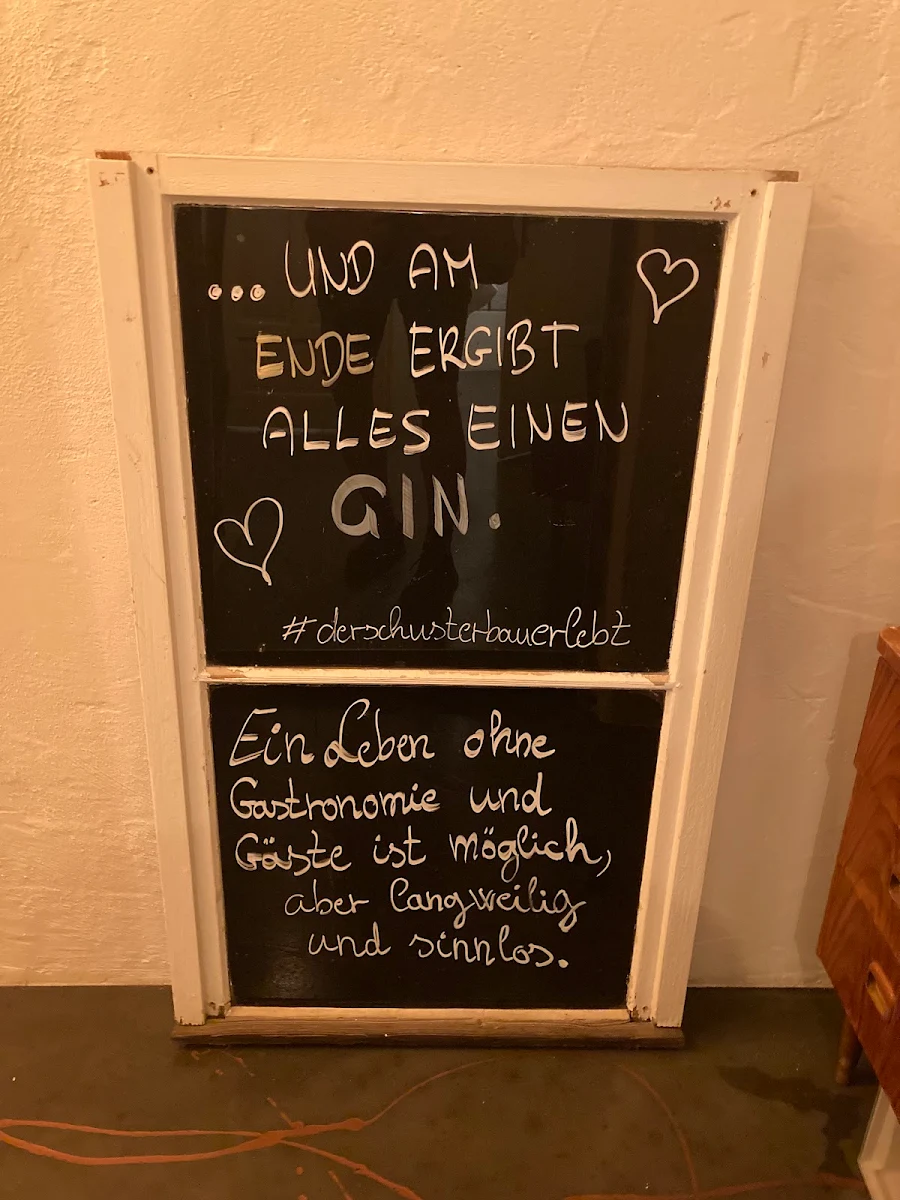 ...UND AM
ENDE ERGIBT
ALLES EINEN
GIN.
#derschusterbauerlebt
Ein Leben ohne
Gastronomie und
Gäste ist möglich,
aber langweilig
und sinnlos.